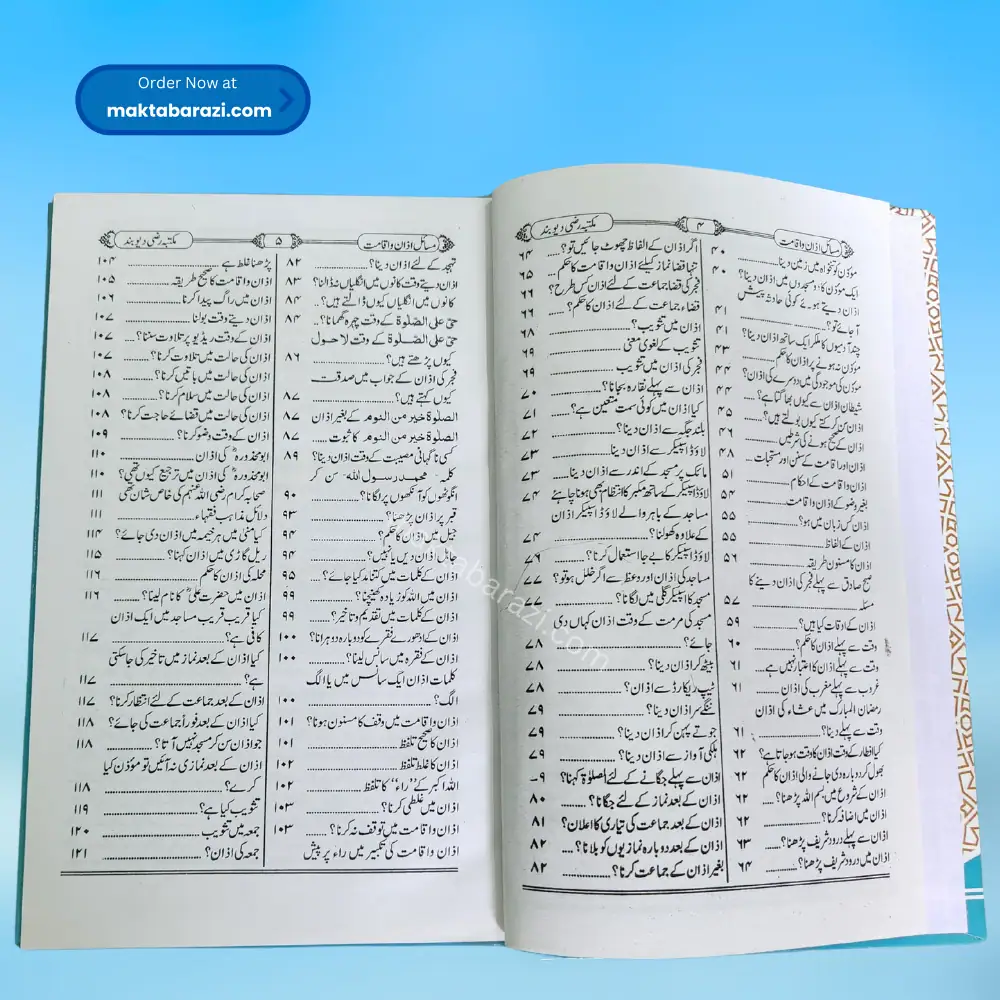 Order Now at
maktabarazi.com
مسائل اذان واقامت
۴
مکتبہ رضی دیوبند
مؤذن کو تنخواہ میں زمین دینا ........ ۴۰
ایک مؤذن کا، دو مسجدوں میں اذان دینا؟ ۴۰
اذان دیتے ہوئے کوئی حادثہ پیش
آجائے تو؟ ........ ۴۱
چند آدمیوں کا ملکر ایک ساتھ اذان دینا؟ ۴۱
مؤذن نہ ہونے پر اذان کا حکم ........ ۴۳
مؤذن کی موجودگی میں دوسرے کی اذان؟ ۴۴
شیطان اذان سے کیوں بھاگتا ہے؟ .... ۴۴
اذان سن کر کتے کیوں بولتے ہیں؟ ...... ۴۵
اذان کے صحیح ہونے کی شرطیں ........ ۴۶
اذان اور اقامت کے سنن اور مستحبات ... ۴۸
اذان واقامت کے احکام ........ ۵۱
بغیر وضو کے اذان واقامت ........ ۵۴
اذان کس زبان میں ہو؟ ........ ۵۵
اذان کے الفاظ ........ ۵۵
اذان کا مسنون طریقہ ........ ۵۶
صبح صادق سے پہلے فجر کی اذان دینے کا
مسئلہ ........ ۵۷
اذان کے اوقات کیا ہیں؟ ........ ۵۹
وقت سے پہلے اذان کا حکم؟ ........ ۶۰
وقت سے پہلے اذان کا اعتبار نہیں ہے ... ۶۱
غروب سے پہلے مغرب کی اذان ........ ۶۱
رمضان المبارک میں عشاء کی اذان
وقت سے پہلے دینا؟ ........ ۶۱
کیا افطار کے وقت اذان کا وقت ہوجاتا ہے؟ ۶۲
بھول کر دوبارہ دی جانے والی اذان کا حکم ۶۲
اذان کے شروع میں بسم اللہ پڑھنا؟ .... ۶۲
اذان میں اضافہ کرنا؟ ........ ۶۲
اذان سے پہلے درود شریف پڑھنا؟ ..... ۶۳
اذان میں درود شریف پڑھنا؟ ........ ۶۴
اگر اذان کے الفاظ چھوٹ جائیں تو؟ .... ۶۴
تنہا قضا نماز کیلئے اذان واقامت کا حکم ... ۶۵
فجر کی قضا جماعت کے لئے اذان کس طرح؟ ۶۶
قضاء جماعت کے لئے اذان کا حکم؟ ..... ۶۶
اذان میں تثویب؟ ........ ۶۸
تثویب کے لغوی معنی ........ ۶۹
فجر کی اذان میں تثویب ........ ۶۹
اذان سے پہلے نقارہ بجانا؟ ........ ۷۰
کیا اذان میں کوئی سمت متعین ہے؟ ..... ۷۱
بلند جگہ سے اذان دینا؟ ........ ۷۲
لاؤڈ اسپیکر سے اذان دینا ........ ۷۳
مانک پر مسجد کے اندر سے اذان دینا ..... ۷۳
لاؤڈ اسپیکر کے ساتھ مکبر کا انتظام بھی ہونا چاہئے ۷۴
مساجد کے باہر والے لاؤڈ اسپیکر اذان
کے علاوہ کھولنا؟ ........ ۷۴
لاؤڈ اسپیکر کا بے جا استعمال کرنا؟ ..... ۷۶
مساجد کی اذان اور وعظ سے اگر خلل ہو تو؟ ۷۷
مسجد کا اسپیکر گلی میں لگانا؟ ........ ۷۷
مسجد کی مرمت کے وقت اذان کہاں دی
جائے؟ ........ ۷۸
بیٹھ کر اذان دینا؟ ........ ۷۸
ٹیپ ریکارڈ سے اذان؟ ........ ۷۸
ننگے سر اذان دینا؟ ........ ۷۹
جوتے پہن کر اذان دینا؟ ........ ۷۹
ہلکی آواز سے اذان دینا؟ ........ ۷۹
اذان سے پہلے جگانے کے لئے أصلوٰۃ کہنا؟ ۹-
اذان کے بعد نماز کے لئے جگانا؟ ...... ۸۰
اذان کے بعد جماعت کی تیاری کا اعلان؟ ۸۱
اذان کے بعد دوبارہ نمازیوں کو بلانا؟ ... ۸۲
بغیر اذان کے جماعت کرنا؟ ........ ۸۲
مسائل اذان واقامت
۵
مکتبہ رضی دیوبند
تہجد کے لئے اذان دینا؟ ........ ۸۲
اذان دیتے وقت کانوں میں انگلیاں نہ ڈالنا؟ ۸۳
کانوں میں انگلیاں کیوں ڈالتے ہیں؟ ... ۸۴
حی علی الصلوة کے وقت چہرہ گھمانا؟ ... ۸۴
حی علی الصلوة کے وقت لاحول
کیوں پڑھتے ہیں؟ ........ ۸۶
فجر کی اذان کے جواب میں صدقت
کیوں کہتے ہیں؟ ........ ۸۷
الصلوة خير من النوم کے بغیر اذان ۸۷
الصلوة خير من النوم کا ثبوت ..... ۸۷
کسی ناگہانی مصیبت کے وقت اذان دینا؟ ۸۹
کلمہ- محمد رسول اللہ- سن کر
انگوٹھوں کو آنکھوں پر لگانا؟ ........ ۹۰
قبر پر اذان پڑھنا؟ ........ ۹۳
جیل میں اذان کا حکم؟ ........ ۹۴
جاہل اذان دیں یا نہیں؟ ........ ۹۴
اذان کے کلمات میں کتنا مد کیا جائے؟ ... ۹۵
اذان میں اللہ کو زیادہ کھینچنا؟ ........ ۹۹
اذان کے کلمات میں تقدیم وتاخیر؟ .... ۹۹
اذان کے ادھورے فقرے کو دوبارہ دوہرانا؟ ۱۰۰
اذان کے فقرہ میں سانس لینا؟ ...... ۱۰۰
کلمات اذان ایک سانس میں یا الگ
الگ؟ ........ ۱۰۰
اذان واقامت میں وقف کا مسنون ہونا؟ ۱۰۱
اذان کا صحیح تلفظ ........ ۱۰۱
اذان کا غلط تلفظ ........ ۱۰۲
اللہ اکبر کے ”راء“ کا تلفظ ........ ۱۰۲
اذان میں غلطی کرنا؟ ........ ۱۰۳
اذان واقامت میں توقف نہ کرنا؟ ..... ۱۰۳
اذان واقامت کی تکبیر میں راء پر پیش
پڑھنا غلط ہے ........ ۱۰۴
اذان واقامت کا صحیح طریقہ ........ ۱۰۵
اذان میں راگ پیدا کرنا ........ ۱۰۶
اذان دیتے وقت بولنا ........ ۱۰۷
اذان کے وقت ریڈیو پر تلاوت سننا؟ ... ۱۰۷
اذان کی حالت میں تلاوت کرنا؟ ..... ۱۰۷
اذان کی حالت میں باتیں کرنا؟ ...... ۱۰۸
اذان کی حالت میں سلام کرنا؟ ...... ۱۰۸
اذان کی حالت میں قضائے حاجت کرنا؟ ۱۰۸
اذان کے وقت وضو کرنا؟ ........ ۱۰۹
ابومحذورہؓ کی اذان ........ ۱۱۰
ابومحذورہؓ کی اذان میں ترجیع کیوں تھی؟ ۱۱۰
صحابہ کرام رضی اللہ عنہم کی خاص شان تھی ۱۱۱
دلائل مذاہب فقہاء ........ ۱۱۱
کیا منٰی میں ہر خیمہ میں اذان دی جائے؟ ۱۱۴
ریل گاڑی میں اذان کہنا؟ ........ ۱۱۵
محلہ کی اذان کا حکم ........ ۱۱۶
اذان میں حضرت علیؓ کا نام لینا؟ ..... ۱۱۶
کیا قریب قریب مساجد میں ایک اذان
کافی ہے؟ ........ ۱۱۷
کیا اذان کے بعد نماز میں تاخیر کی جاسکتی
ہے؟ ........ ۱۱۷
اذان کے بعد جماعت کے لئے انتظار کرنا؟ ۱۱۷
کیا اذان کے بعد فوراً جماعت کی جائے؟ ۱۱۸
جو اذان سن کر مسجد نہیں آتا؟ ........ ۱۱۸
اذان کے بعد نمازی نہ آئیں تو مؤذن کیا
کرے؟ ........ ۱۱۸
تثویب کیا ہے؟ ........ ۱۱۹
جمعہ میں تثویب ........ ۱۲۰
جمعہ کی اذان؟ ........ ۱۲۱